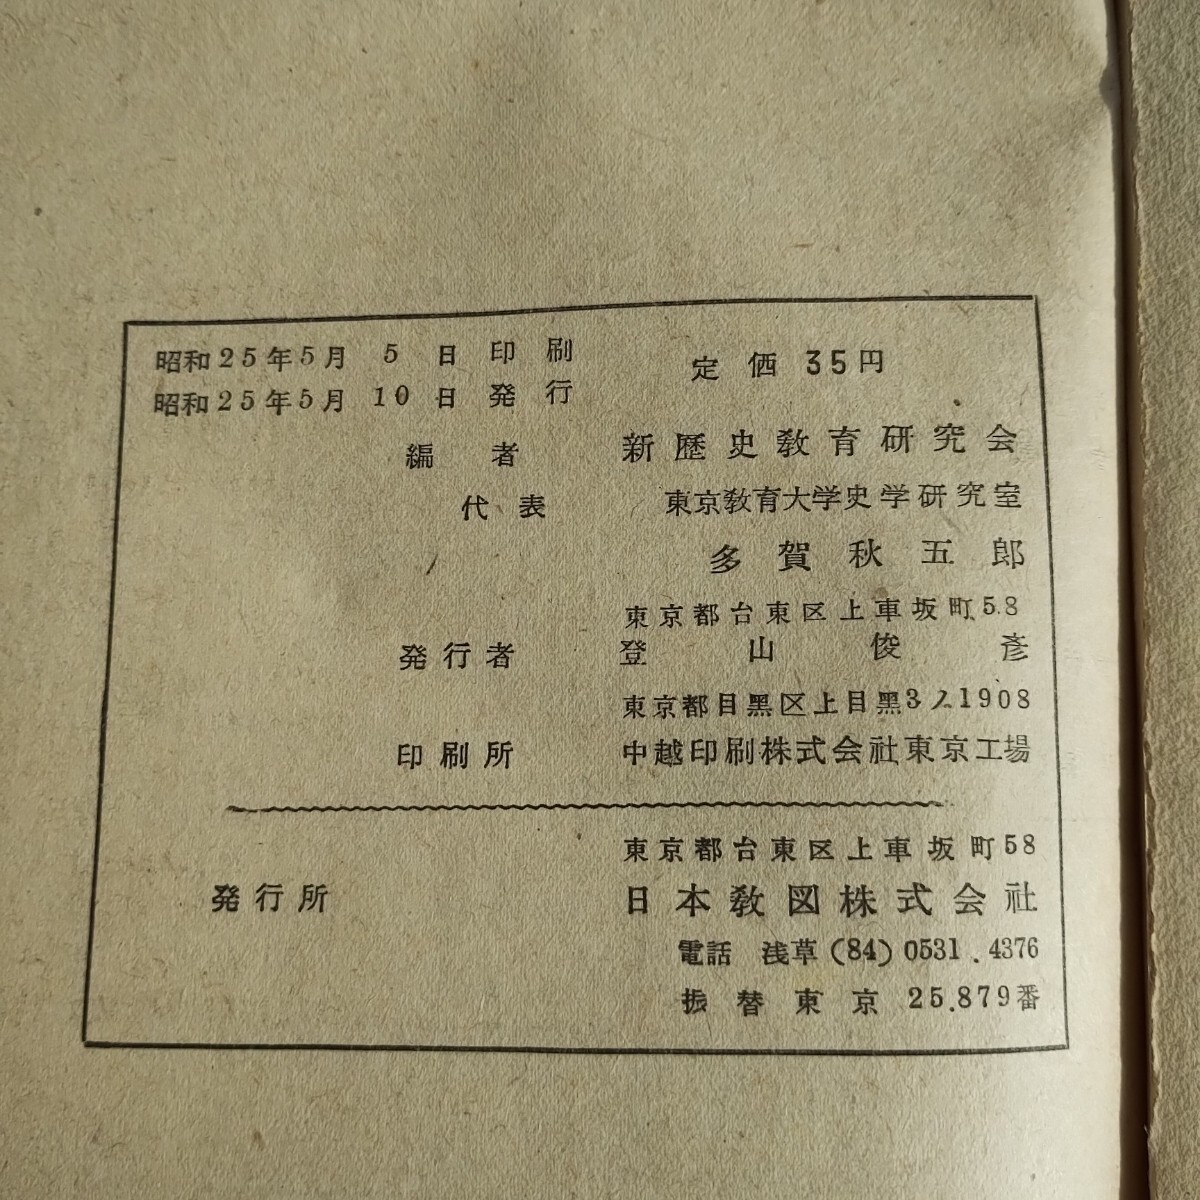 昭和25年5月 5 日 印 刷
昭和25年5月 10 日 発 行
定 価 35円
編 者 新歴史教育研究会
代 表 東京教育大学史学研究室
多賀秋五郎
東京都台東区上車坂町58
発行者 登山俊彦
東京都目黒区上目黒3ノ1908
印刷所 中越印刷株式会社東京工場
東京都台東区上車坂町58
発行所 日本教図株式会社
電話 浅草(84)0531.4376
振替東京 25.879番